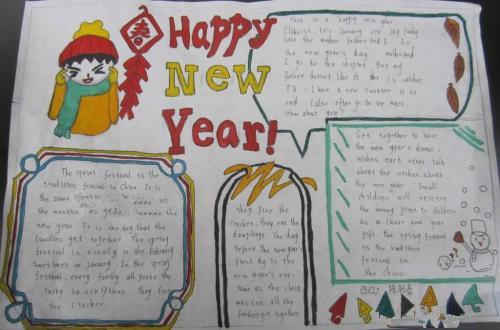 春
Happy
New
Year!
This is a happy new year
I like it. It's January 1nd. My family
have the mather father and I. In
the new year's day. mother and
I go to the shoping. But my
father doesnt like it. He is watches
TV. I have a new sweater is is
red. I also often go to see mies.
How about you?
Get together to have
the new year's dinner.
wishes each other talk
about the wishes about
the new year. Small
children will receive
the money given to children
as a lunar new year
gift the spring festival
is the tradition
festival in
the China
The spring festival is the
traditiona festival in China. It is
the same
the months
new year. It is the day that the
families get together The spring
festival is usually in the february.
Sometimes in January. In the spring
festival, every family all paste the
They fire
the cracker.
they fire the
cracker. they eat the
dumplings. The day
before the new year's
first day is the
new year's eve.
families get together